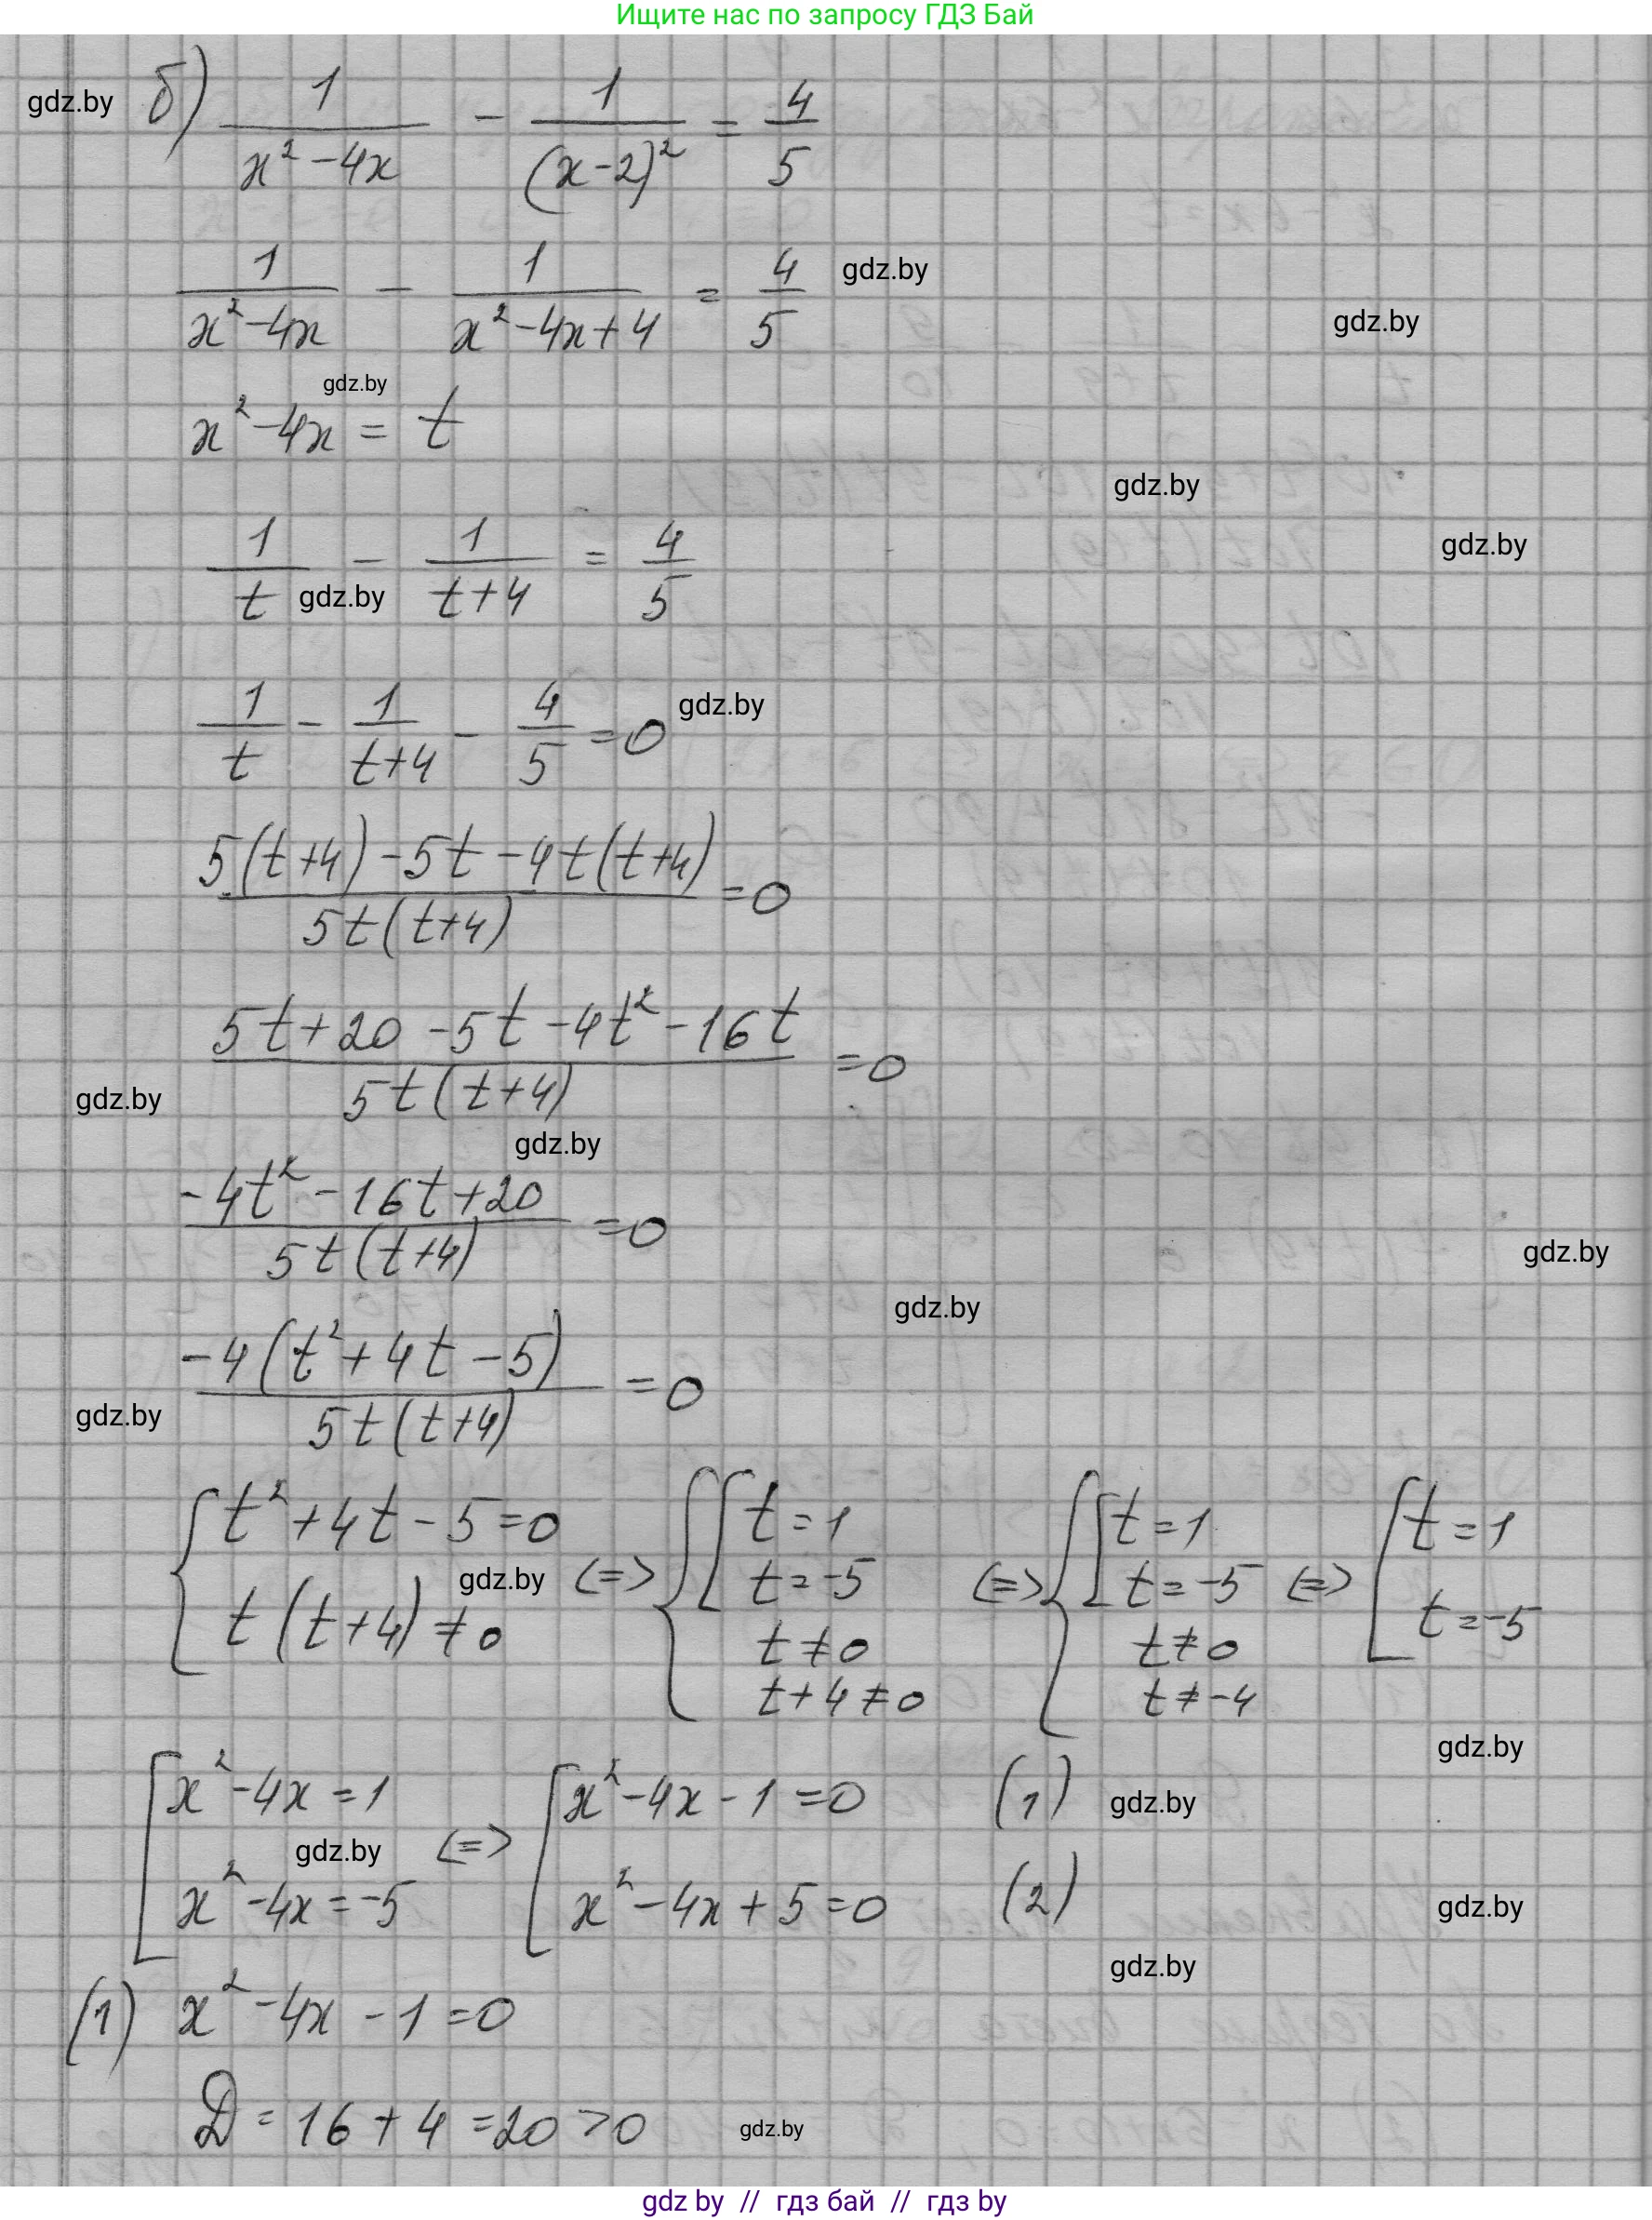 Ищите нас по запросу ГДЗ Бай
gdz.by
б) 1/(x² - 4x) - 1/(x-2)² = 4/5
1/(x² - 4x) - 1/(x² - 4x + 4) = 4/5
gdz.by
gdz.by
gdz.by
x² - 4x = t
gdz.by
1/t - 1/(t+4) = 4/5
gdz.by
gdz.by
1/t - 1/(t+4) - 4/5 = 0
gdz.by
(5(t+4) - 5t - 4t(t+4))/(5t(t+4)) = 0
(5t + 20 - 5t - 4t² - 16t)/(5t(t+4)) = 0
gdz.by
gdz.by
(-4t² - 16t + 20)/(5t(t+4)) = 0
gdz.by
gdz.by
(-4(t² + 4t - 5))/(5t(t+4)) = 0
gdz.by
{ t² + 4t - 5 = 0 <=> { [ t = 1 <=> { [ t = 1 <=> [ t = 1
gdz.by t = -5 t = -5 t = -5
t(t+4) ≠ 0 t ≠ 0 t ≠ 0
t + 4 ≠ 0 t ≠ -4
gdz.by
[ x² - 4x = 1 <=> [ x² - 4x - 1 = 0 (1) gdz.by
gdz.by
x² - 4x = -5 x² - 4x + 5 = 0 (2) gdz.by
gdz.by
(1) x² - 4x - 1 = 0
D = 16 + 4 = 20 > 0 gdz.by
gdz by // гдз бай // гдз by